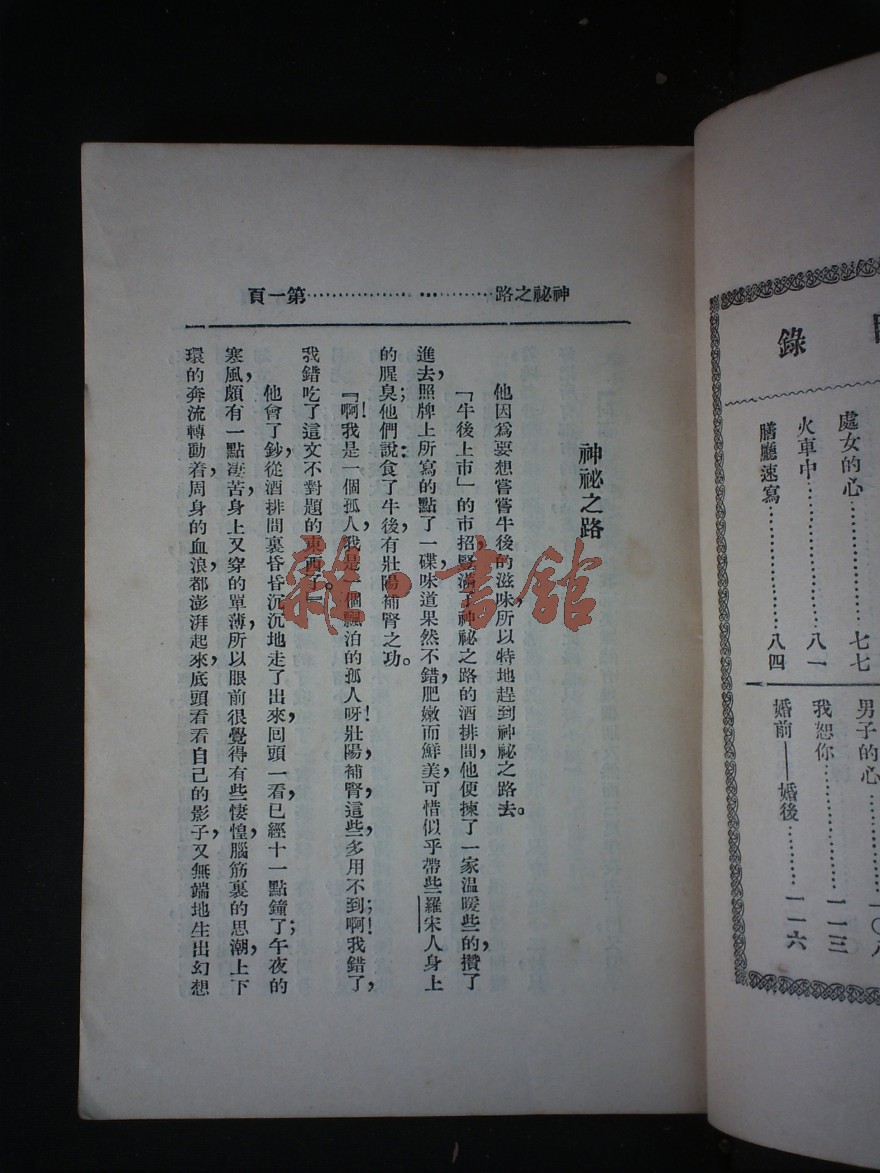 目錄
處女的心…………七七
火車中…………八一
膳廳速寫…………八四
男子的心…………一〇八
我恕你…………一一三
婚前——婚後…………一一六
神祕之路…………第一頁
神祕之路
他因爲要想嘗嘗牛後的滋味，所以特地趕到神祕之路去。
「牛後上市」的市招，豎滿了神祕之路的酒排間，他便揀了一家温暖些的攢了
進去，照牌上所寫的點了一碟，味道果然不錯，肥嫩而鮮美，可惜似乎帶些羅宋人身上
的腥臭；他們說：食了牛後，有壯陽補腎之功。
『啊！我是一個孤人，我是一個飄泊的孤人呀！壯陽補腎，這些多用不到；啊！我錯了，
我錯吃了這文不對題的東西了。』
他會了鈔，從酒排間裏昏昏沉沉地走了出來，回頭一看，已經十一點鐘了；午夜的
寒風，頗有一點凄苦，身上又穿的單薄，所以眼前很覺得有些悽惶，腦筋裏的思潮，上下
環的奔流轉動着，周身的血浪，都澎湃起來，底頭看看自己的影子，又無端地生出幻想
雜·書館